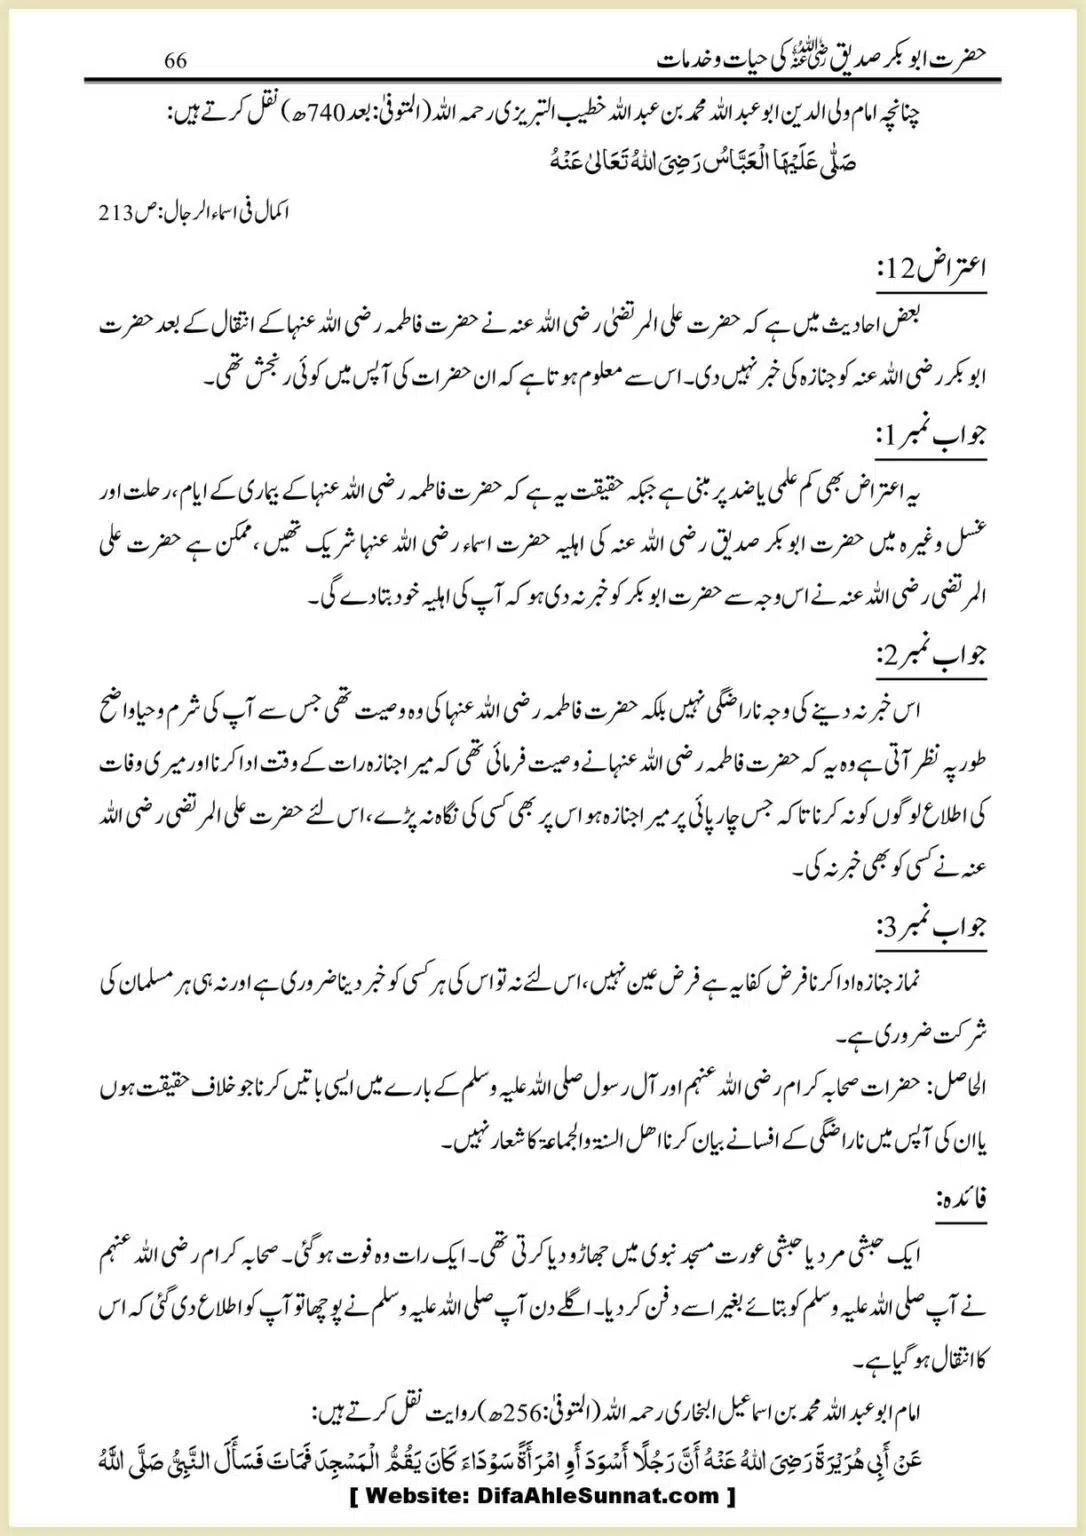 حضرت ابو بکر صدیق رضی اللہ عنہ کی حیات و خدمات 66
چنانچہ امام ولی الدین ابو عبد اللہ محمد بن عبد اللہ خطیب التبریزی رحمہ اللہ (المتوفیٰ: بعد 740ھ) نقل کرتے ہیں:
صَلّٰی عَلَيْهَا الْعَبَّاسُ رَضِیَ اللّٰہُ تَعَالیٰ عَنْهُ
اکمال فی اسماء الرجال: ص213
اعتراض 12:
بعض احادیث میں ہے کہ حضرت علی المرتضیٰ رضی اللہ عنہ نے حضرت فاطمہ رضی اللہ عنہا کے انتقال کے بعد حضرت
ابو بکر رضی اللہ عنہ کو جنازہ کی خبر نہیں دی۔ اس سے معلوم ہوتا ہے کہ ان حضرات کی آپس میں کوئی رنجش تھی۔
جواب نمبر 1:
یہ اعتراض بھی کم علمی یا ضد پر مبنی ہے جبکہ حقیقت یہ ہے کہ حضرت فاطمہ رضی اللہ عنہا کے بیماری کے ایام، رحلت اور
غسل وغیرہ میں حضرت ابو بکر صدیق رضی اللہ عنہ کی اہلیہ حضرت اسماء رضی اللہ عنہا شریک تھیں، ممکن ہے حضرت علی
المرتضی رضی اللہ عنہ نے اس وجہ سے حضرت ابو بکر کو خبر نہ دی ہو کہ آپ کی اہلیہ خود بتا دے گی۔
جواب نمبر 2:
اس خبر نہ دینے کی وجہ ناراضگی نہیں بلکہ حضرت فاطمہ رضی اللہ عنہا کی وہ وصیت تھی جس سے آپ کی شرم و حیا واضح
طور پہ نظر آتی ہے وہ یہ کہ حضرت فاطمہ رضی اللہ عنہا نے وصیت فرمائی تھی کہ میرا جنازہ رات کے وقت ادا کرنا اور میری وفات
کی اطلاع لوگوں کو نہ کرنا تا کہ جس چارپائی پر میرا جنازہ ہو اس پر بھی کسی کی نگاہ نہ پڑے، اس لئے حضرت علی المرتضی رضی اللہ
عنہ نے کسی کو بھی خبر نہ کی۔
جواب نمبر 3:
نماز جنازہ ادا کرنا فرض کفایہ ہے فرض عین نہیں، اس لئے نہ تو اس کی ہر کسی کو خبر دینا ضروری ہے اور نہ ہی ہر مسلمان کی
شرکت ضروری ہے۔
الحاصل: حضرات صحابہ کرام رضی اللہ عنہم اور آل رسول صلی اللہ علیہ وسلم کے بارے میں ایسی باتیں کرنا جو خلاف حقیقت ہوں
یا ان کی آپس میں ناراضگی کے افسانے بیان کرنا اهل السنۃ والجماعۃ کا شعار نہیں۔
فائدہ:
ایک حبشی مرد یا حبشی عورت مسجد نبوی میں جھاڑو دیا کرتی تھی۔ ایک رات وہ فوت ہو گئی۔ صحابہ کرام رضی اللہ عنہم
نے آپ صلی اللہ علیہ وسلم کو بتائے بغیر اسے دفن کر دیا۔ اگلے دن آپ صلی اللہ علیہ وسلم نے پوچھا تو آپ کو اطلاع دی گئی کہ اس
کا انتقال ہو گیا ہے۔
امام ابو عبد اللہ محمد بن اسماعیل البخاری رحمہ اللہ (المتوفیٰ: 256ھ) روایت نقل کرتے ہیں:
عَنْ أَبِی هُرَيْرَةَ رَضِیَ اللّٰہُ عَنْهُ أَنَّ رَجُلًا أَسْوَدَ أَوِ امْرَأَةً سَوْدَاءَ كَانَ يَقُمُّ الْمَسْجِدَ فَمَاتَ فَسَأَلَ النَّبِیُّ صَلَّی اللّٰہُ
[ Website: DifaAhleSunnat.com ]